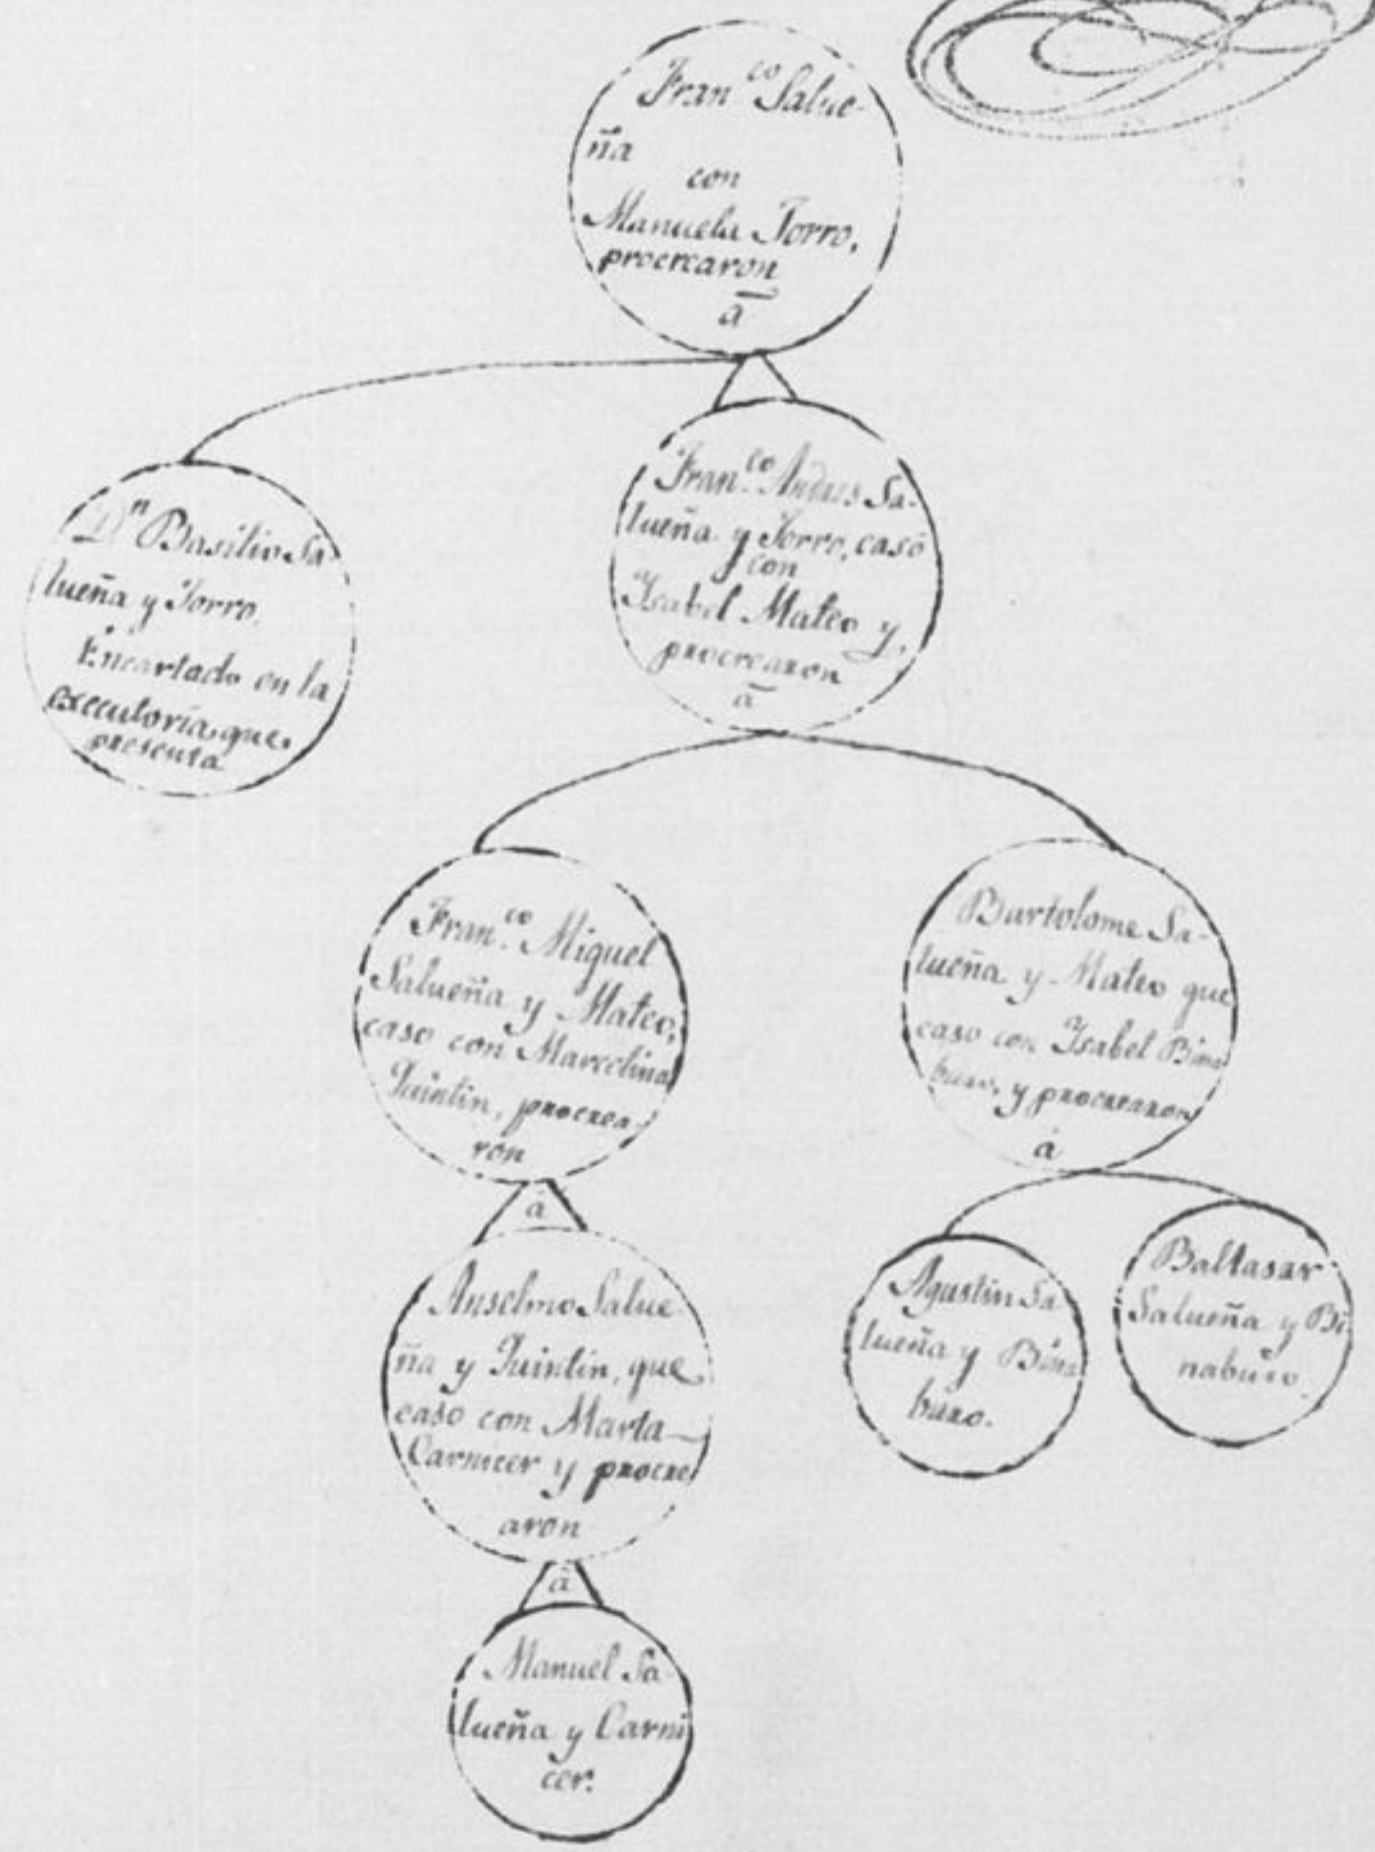 Fran.co Salue-
ña
con
Manuela Torro,
procrearon
à
Dn Basilio Sa-
lueña y Torro.
Encartado en la
executoria que
presenta
Fran.co Andres Sa-
lueña y Torro, casó
con
Ysabel Mateo y,
procrearon
à
Fran.co Miguel
Salueña y Mateo,
caso con Marcelina
Quintin, procrea-
ron
à
Bartolome Sa-
lueña y Mateo que
caso con Ysabel Bina
buro, y procrearon
à
Anselmo Salue
ña y Quintin, que
caso con Marta
Carnicer y procre
aron
à
Agustin Sa
lueña y Bina
buro.
Baltasar
Salueña y Bi
naburo.
Manuel Sa-
lueña y Carni
cer.